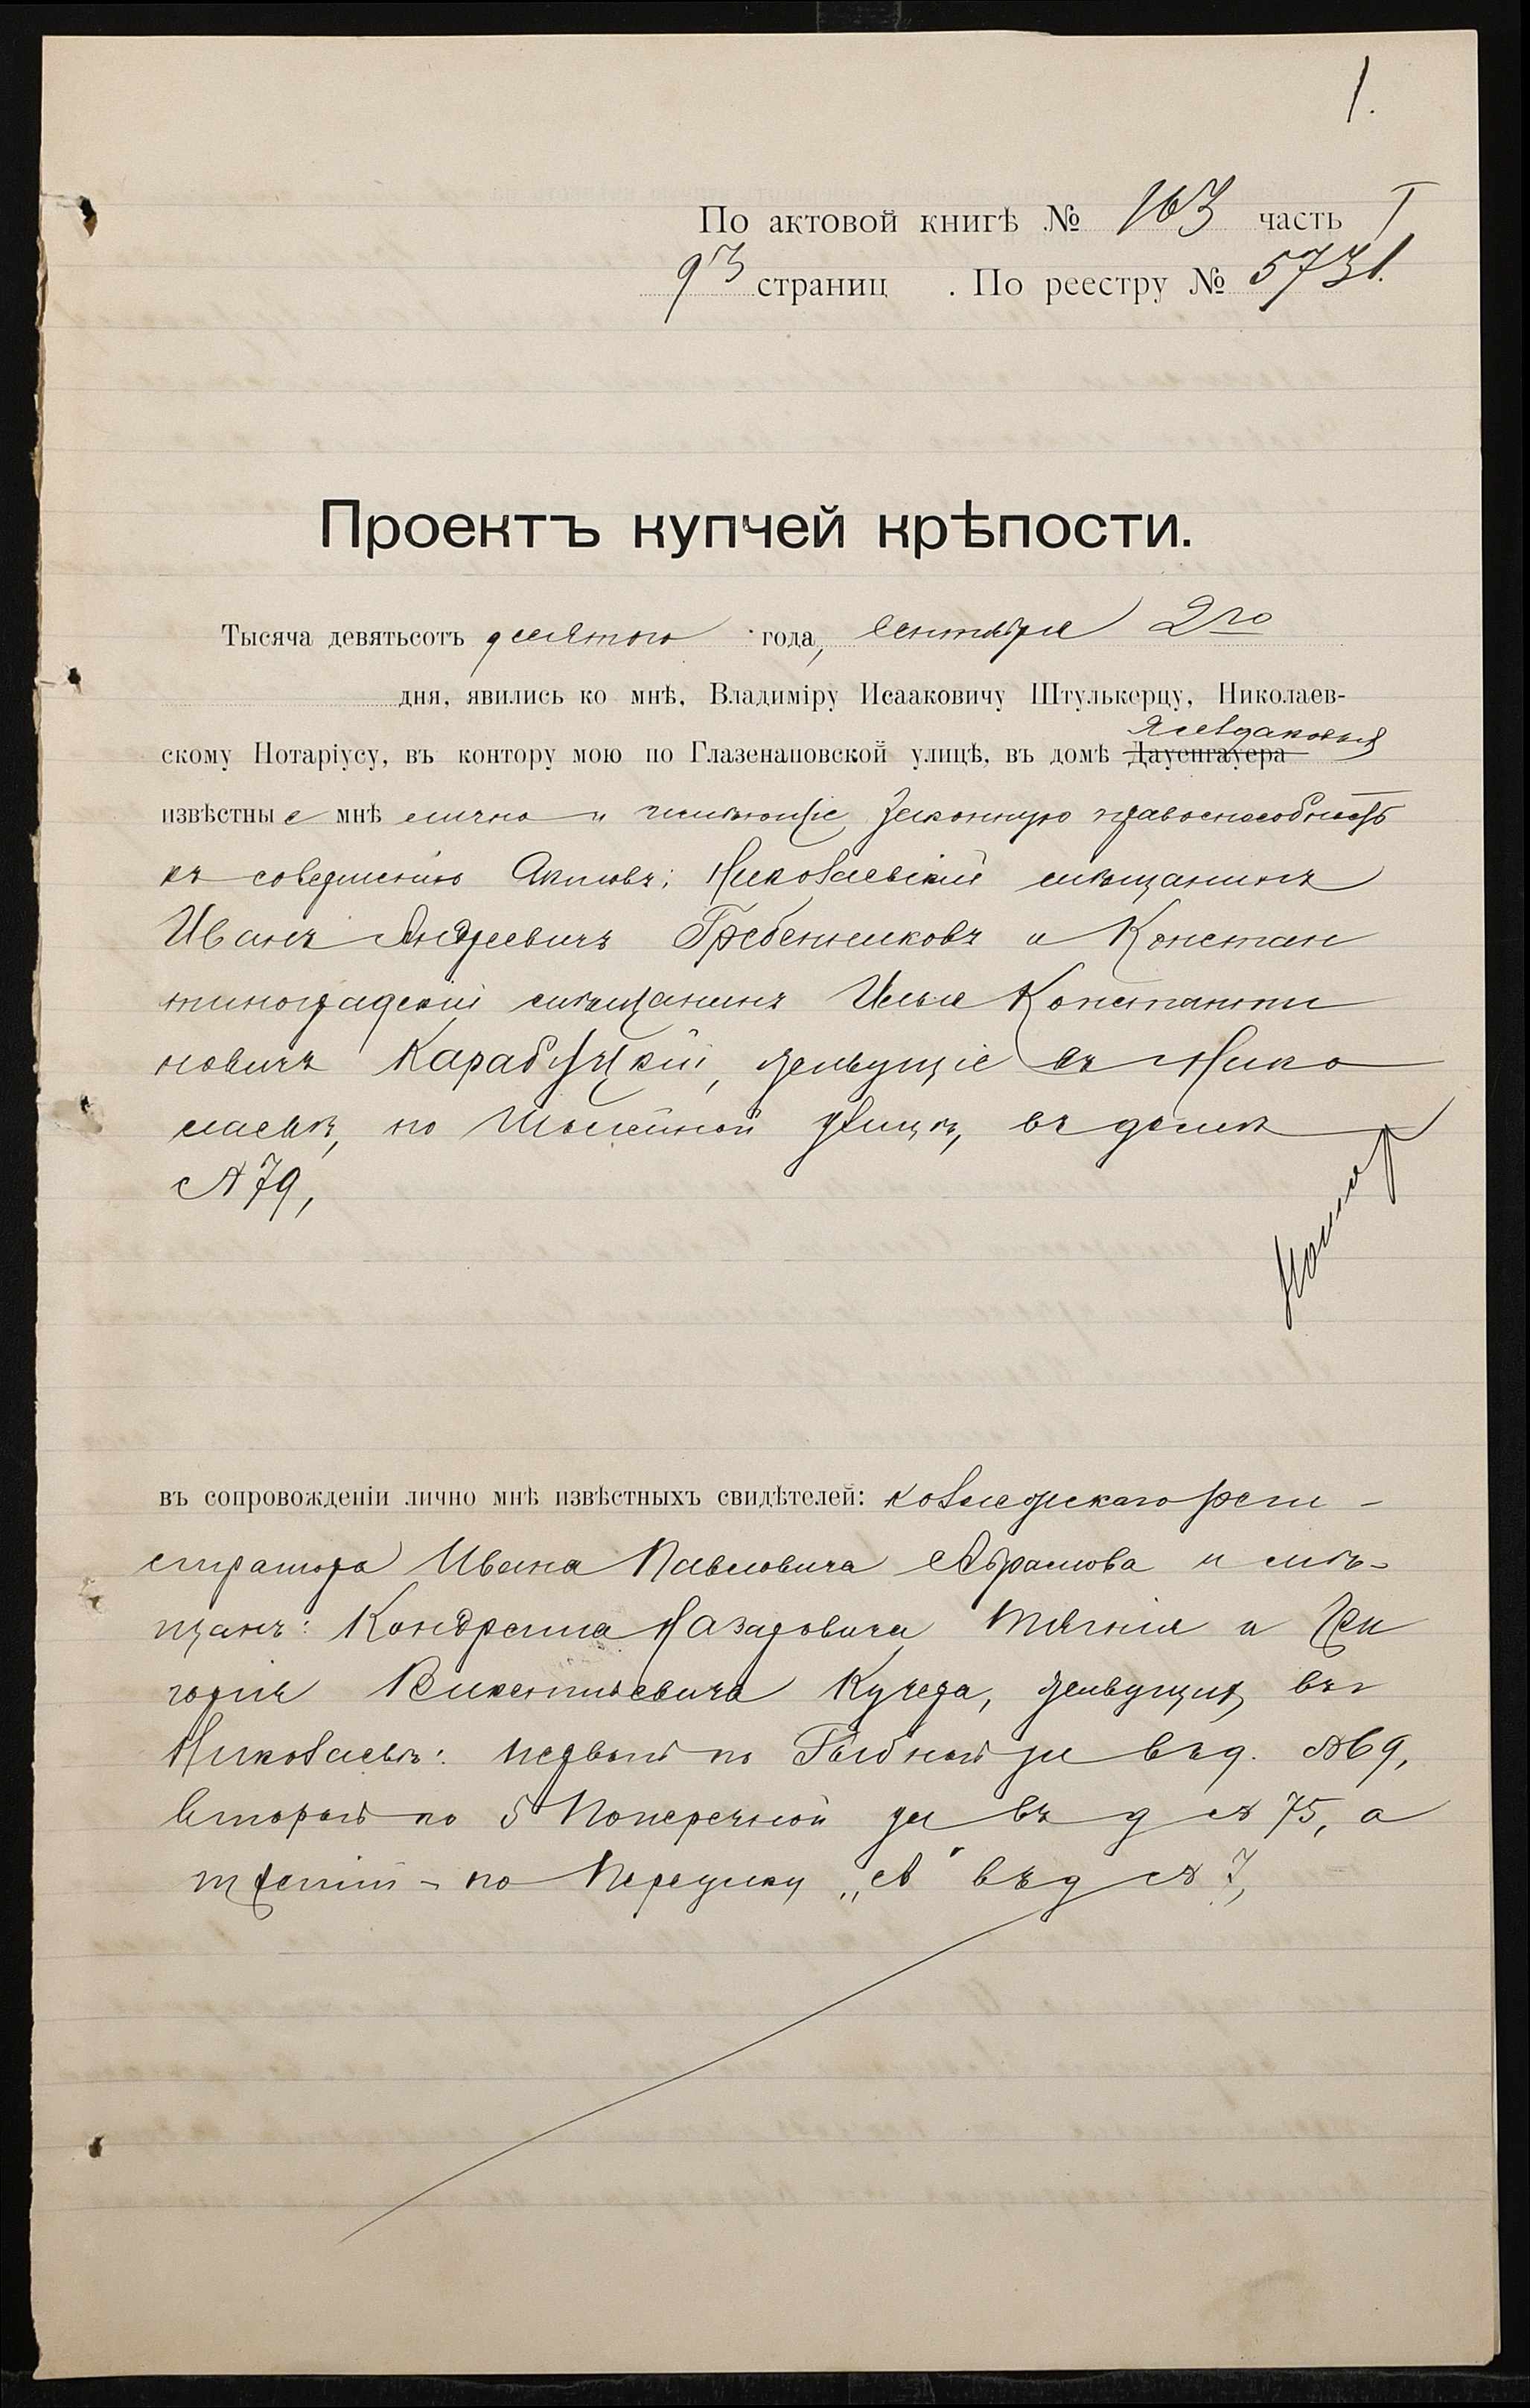 1.
По актовой книгѣ № 163 часть I
93 страниц . По реестру № 5731.
Проектъ купчей крѣпости.
Тысяча девятьсотъ десятого года, сентября 2го
дня, явились ко мнѣ, Владиміру Исааковичу Штулькерцу, Николаев-
скому Нотаріусу, въ контору мою по Глазенаповской улицѣ, въ домѣ Дауенгауера
извѣстные мнѣ лично и имѣющіе законную правоспособность
къ совершенію актовъ: Николаевскій мѣщанинъ
Иванъ Андреевичъ Гребенниковъ и Констан
тиноградскій мѣщанинъ Илья Константи
новичъ Карабуцкій, живущіе въ Нико
лаевѣ, по улицѣ, въ домѣ
№ 79,
въ сопровожденіи лично мнѣ извѣстныхъ свидѣтелей: коллежскаго реги-
стратора Ивана Павловича Абрамова и мѣ-
щанъ: Кондратія Назаровича и Гри
горія Викентьевича Кучера, живущихъ въ
Николаевѣ: первый по Рыбной ул въ д. № 69,
второй по 5 Поперечной ул въ д № 75, а
третій - по Переулку „А" въ д № 7,